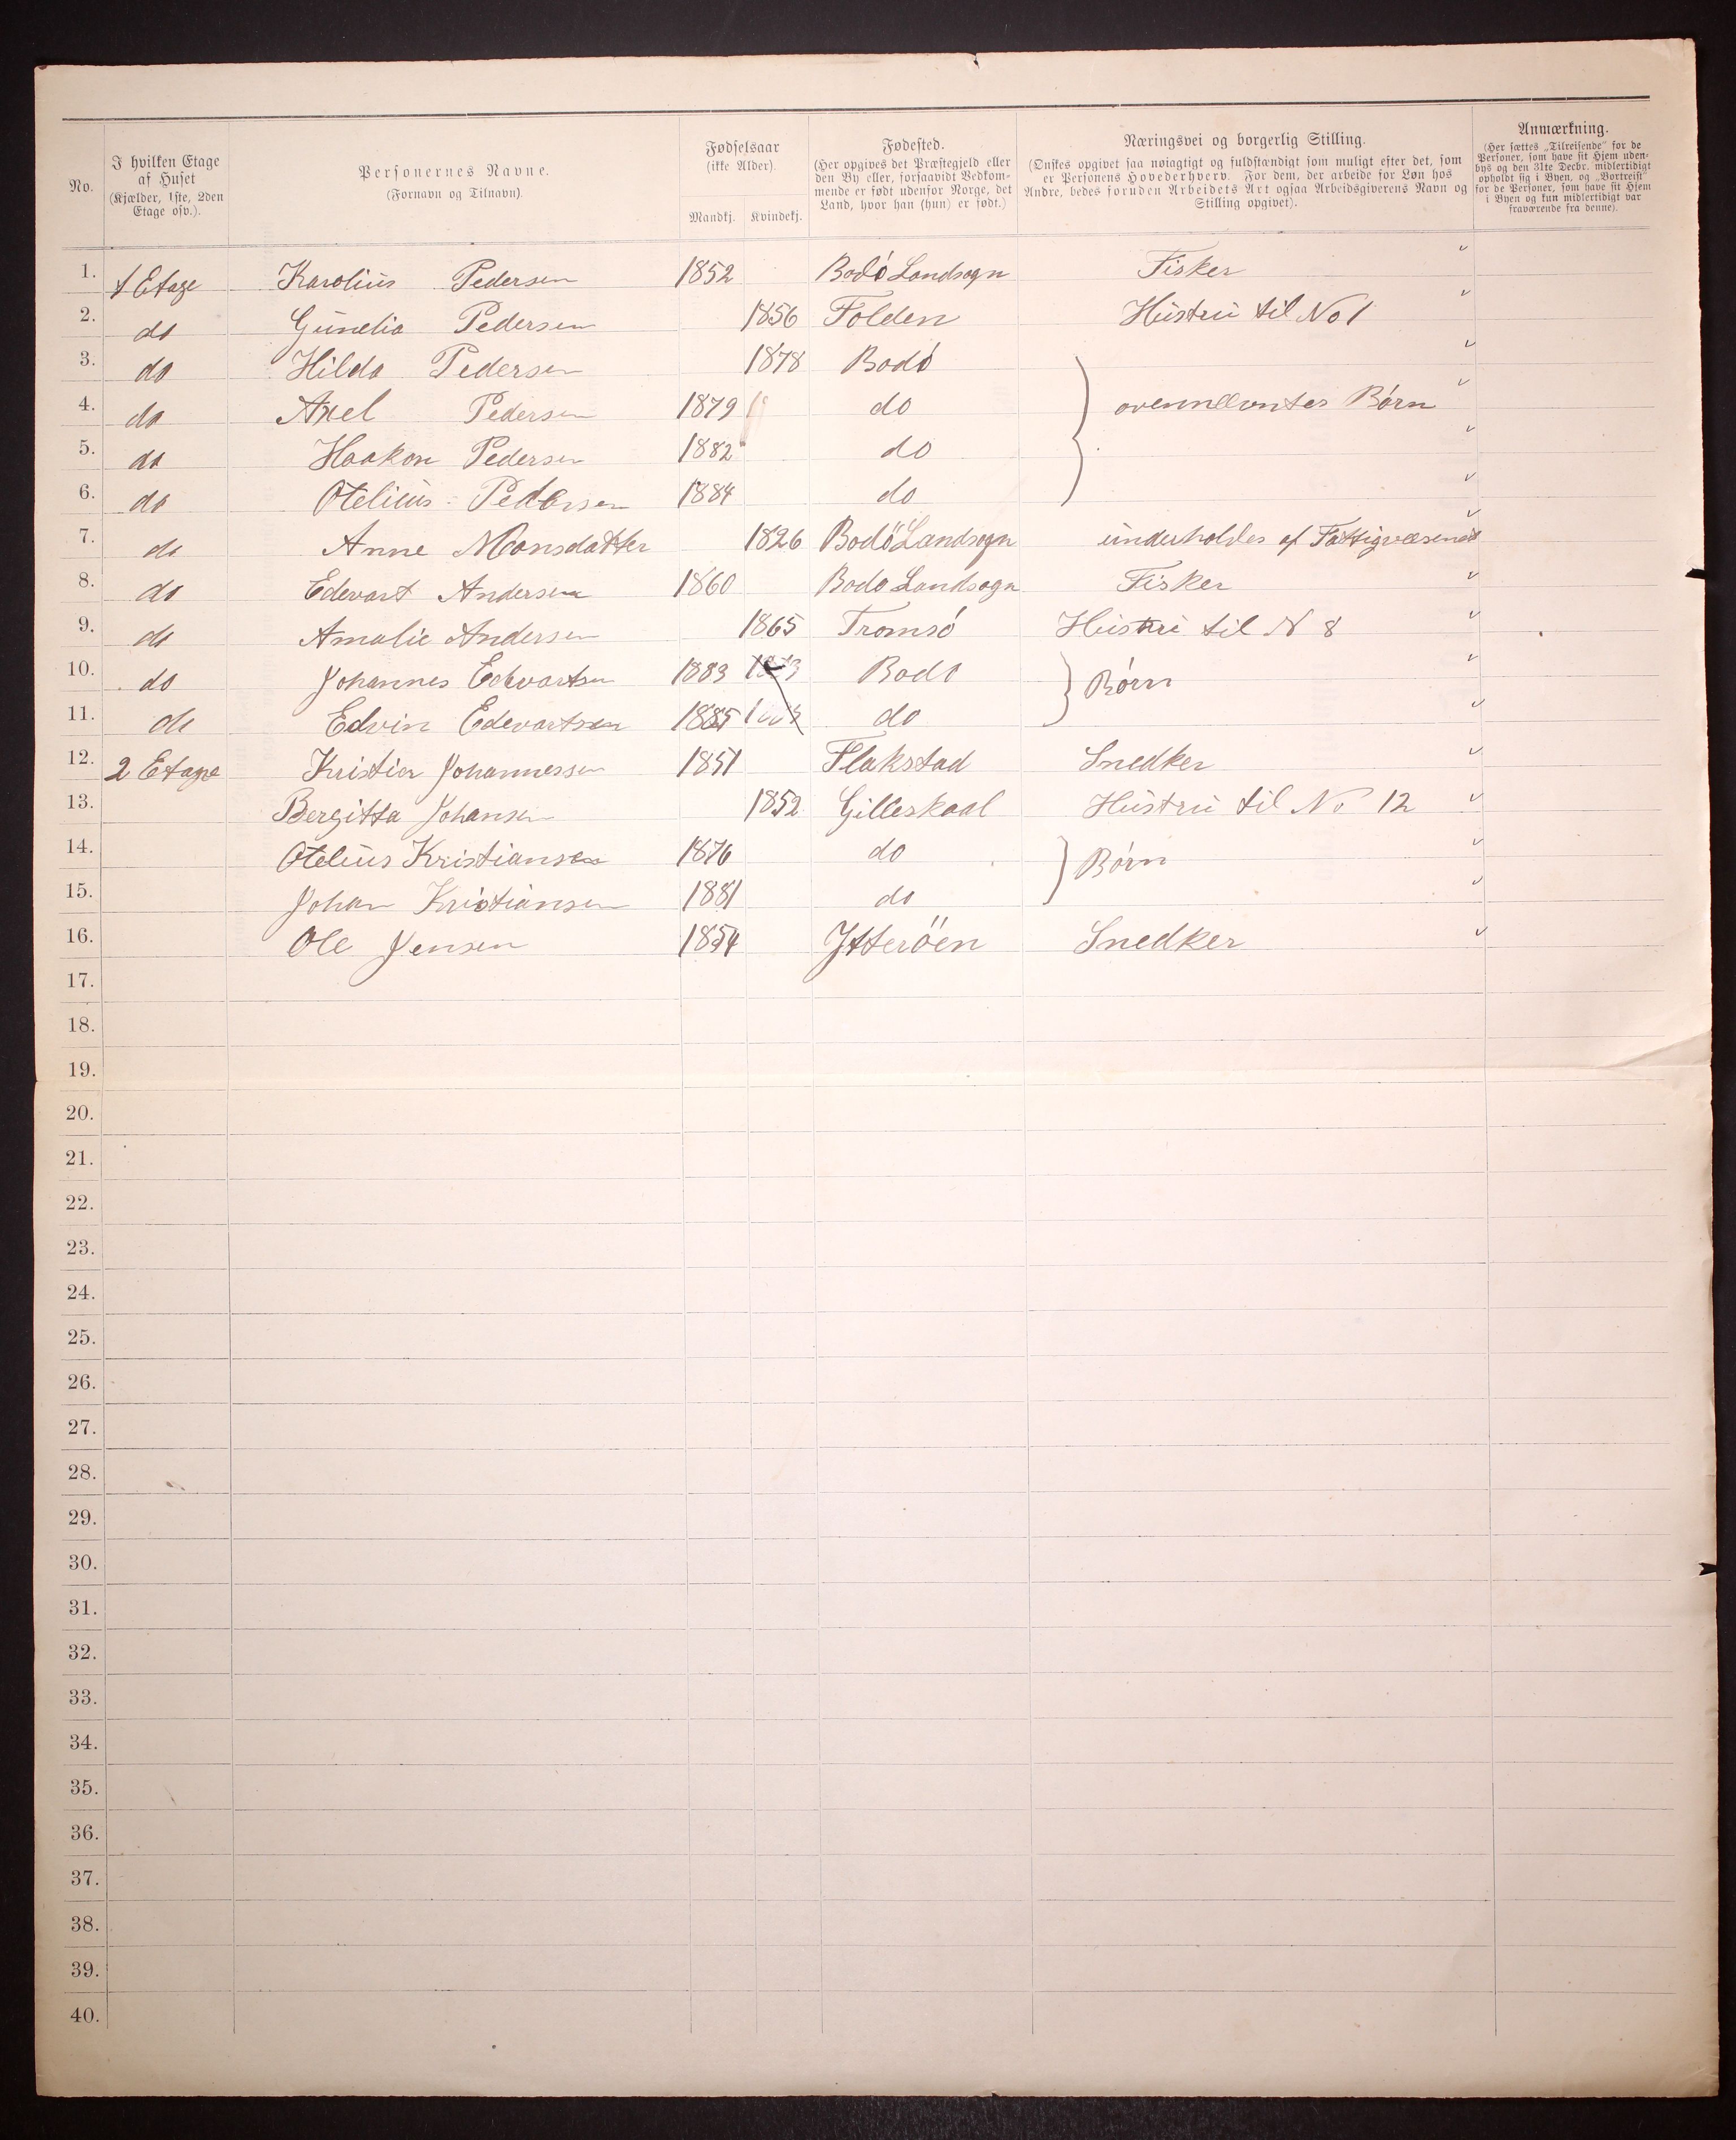 No.
I hvilken Etage
af Huset
(Kjælder, 1ste, 2den
Etage osv.).
Personernes Navne.
(Fornavn og Tilnavn).
Fødselsaar
(ikke Alder).
Mandkj. Kvindekj.
Fødested.
(Her opgives det Præstegjeld eller
den By eller, forsaavidt Vedkom-
mende er født udenfor Norge, det
Land, hvor han (hun) er født.)
Næringsvei og borgerlig Stilling.
(Ønskes opgivet saa nøiagtigt og fuldstændigt som muligt efter det, som
er Personens Hovederhverv. For dem, der arbeide for Løn hos
Andre, bedes foruden Arbeidets Art ogsaa Arbeidsgiverens Navn og
Stilling opgivet).
Anmærkning.
(Her sættes „Tilreisende" for de
Personer, som have sit Hjem uden-
bys og den 31te Decbr. midlertidigt
opholdt sig i Byen, og „Bortreist"
for de Personer, som have sit Hjem
i Byen og kun midlertidigt var
fraværende fra denne).
1. 1 Etage Karolius Pedersen 1852 Bodö Landsogn Fisker
2. do Gunelia Pedersen 1856 Folden Hustru til No 1
3. do Hilda Pedersen 1878 Bodö
4. do Axel Pedersen 1879 do ovennævntes Börn
5. do Haakon Pedersen 1882 do
6. do Otelius Pedersen 1884 do
7. do Anne Monsdatter 1826 Bodö Landsogn underholdes af Fattigvæsenet
8. do Edevart Andersen 1860 Bodo Landsogn Fisker
9. do Amalie Andersen 1865 Tromsö Hustru til N 8
10. do Johannes Edevartsen 1883 Bodö Börn
11. do Edvin Edevartsen 1885 do
12. 2 Etage Kristian Johannessen 1851 Flakstad Snedker
13. Bergitta Johansen 1852 Gilleskaal Hustru til No 12
14. Otelius Kristiansen 1876 do Börn
15. Johan Kristiansen 1881 do
16. Ole Jensen 1854 Ytteröen Snedker
17.
18.
19.
20.
21.
22.
23.
24.
25.
26.
27.
28.
29.
30.
31.
32.
33.
34.
35.
36.
37.
38.
39.
40.